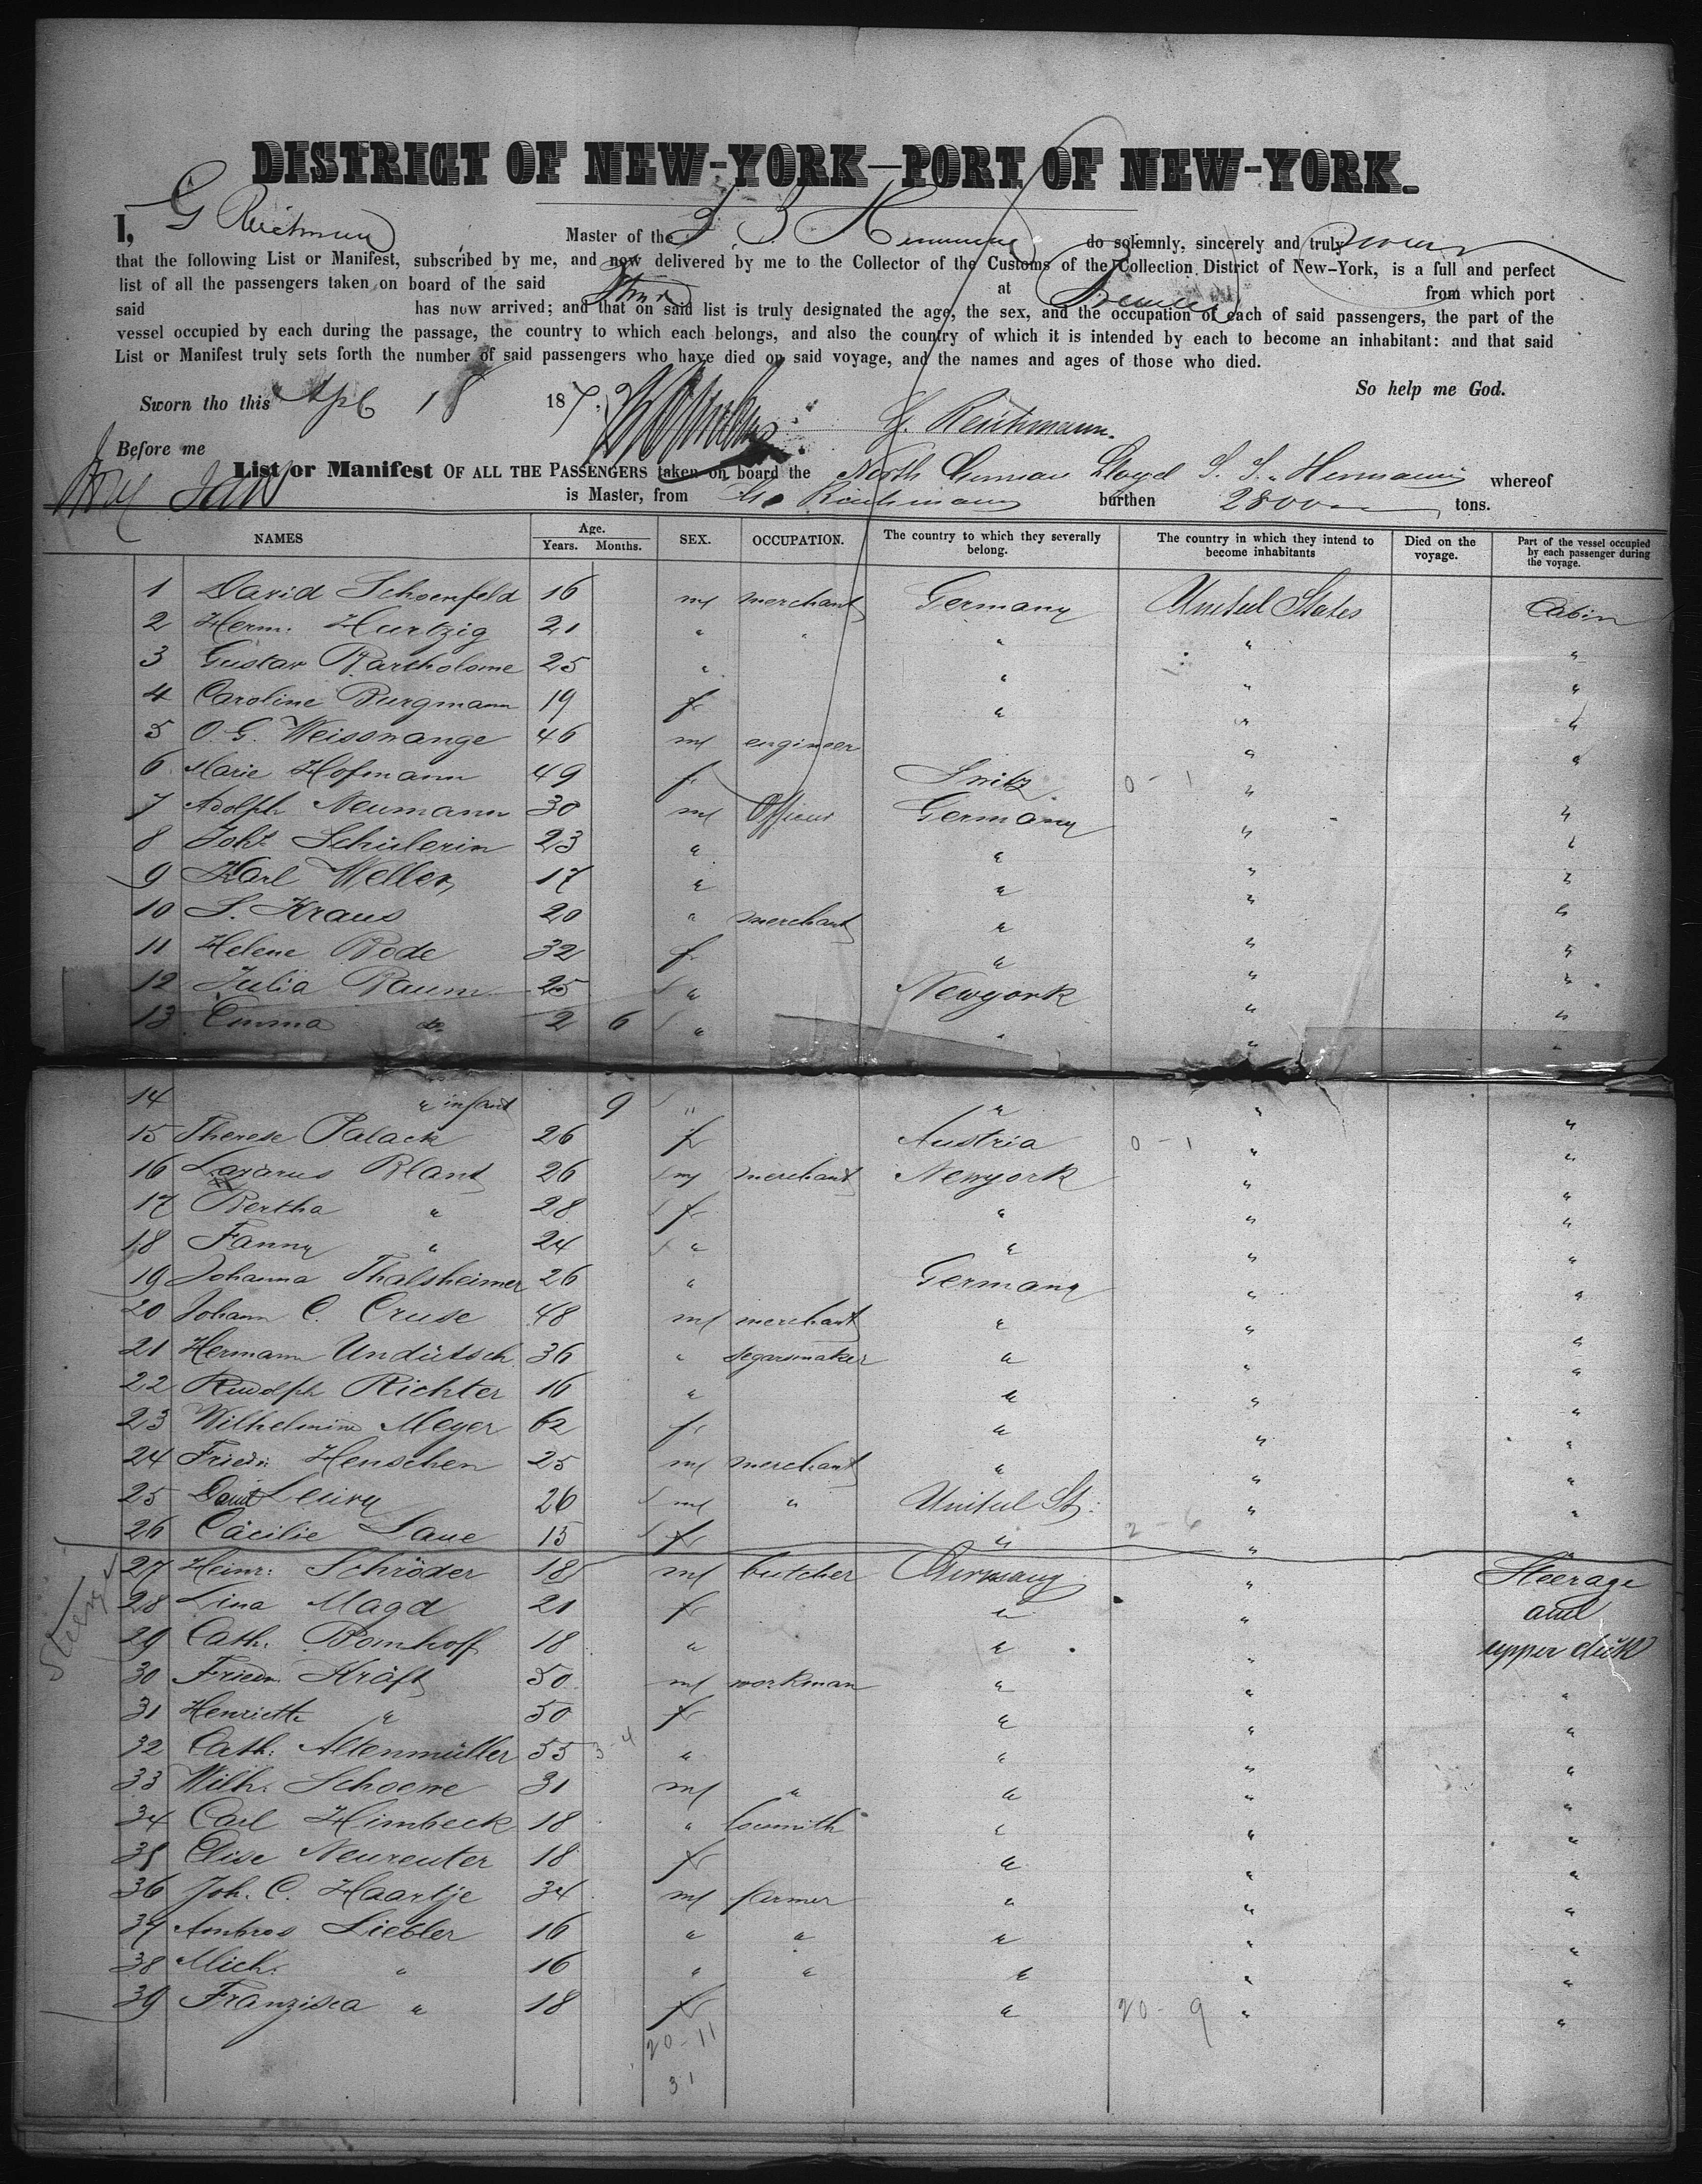 DISTRICT OF NEW-YORK—PORT OF NEW-YORK.
I, G Reichmann Master of the S S Hermann do solemnly, sincerely and truly swear
that the following List or Manifest, subscribed by me, and now delivered by me to the Collector of the Customs of the Collection District of New-York, is a full and perfect
list of all the passengers taken on board of the said Stmr at Bremen from which port
said has now arrived; and that on said list is truly designated the age, the sex, and the occupation of each of said passengers, the part of the
vessel occupied by each during the passage, the country to which each belongs, and also the country of which it is intended by each to become an inhabitant: and that said
List or Manifest truly sets forth the number of said passengers who have died on said voyage, and the names and ages of those who died.
So help me God.
Sworn tho this Apl 18 187 G. Reichmann.
Before me
List or Manifest OF ALL THE PASSENGERS taken on board the North German Lloyd S. S. „Hermann" whereof
is Master, from Reichmann burthen 2800 tons.
NAMES Age. Years. Months. SEX. OCCUPATION. The country to which they severally belong. The country in which they intend to become inhabitants Died on the voyage. Part of the vessel occupied by each passenger during the voyage.
1 David Schoenfeld 16 m merchant Germany United States Cabin
2 Herm. Hurtzig 21 " " " " "
3 Gustav Bartholome 25 " " " "
4 Caroline Burgmann 19 f " " "
5 O. G. Weissnange 46 m engineer " "
6 Marie Hofmann 49 f Switz. 0 - 1 "
7 Adolph Neumann 30 m Officer Germany " "
8 Joht Schülerin 23 " " " "
9 Karl Weller 17 " " " "
10 S. Kraus 20 " merchant " " "
11 Helene Bode 32 f " " "
12 Julia Baum 25 " Newyork " "
13 Emma do 2 6 " " " "
14 " infant 9 " " " "
15 Therese Palack 26 f Austria 0 - 1 " "
16 Lazarus Bland 26 m merchant Newyork " "
17 Bertha " 28 f " " "
18 Fanny " 24 " " " "
19 Johanna Thalsheimer 26 " Germany " "
20 Johann C. Cruse 48 m merchant " " "
21 Hermann Undütsch 36 " Segarsmaker " " "
22 Rudolph Richter 16 " " " "
23 Wilhelmine Meyer 62 f " " "
24 Friedr. Henschen 25 m merchant " " "
25 David Leivy 26 m " United St. " "
26 Cäcilie Laue 15 f " 2 - 6 " "
27 Heinr: Schröder 18 m butcher Germany " Steerage
28 Lina Magd 21 f " " and
29 Cath. Bomhoff 18 " " " upper deck
30 Friedr. Kräft 50 m workman " " "
31 Henriette " 50 f " " "
32 Cath: Altenmüller 55 3 - 4 " " " "
33 Wilh. Schoene 31 m " " " "
34 Carl Himbeck 18 " locsmith " " "
35 Elise Neureuter 18 f " " "
36 Joh. C. Haartje 34 m farmer " " "
37 Ambros Liebler 16 " " " " "
38 Mich. " 16 " " " " "
39 Franzisca " 18 f " 20 - 9 " "
20-11
31
Steerage